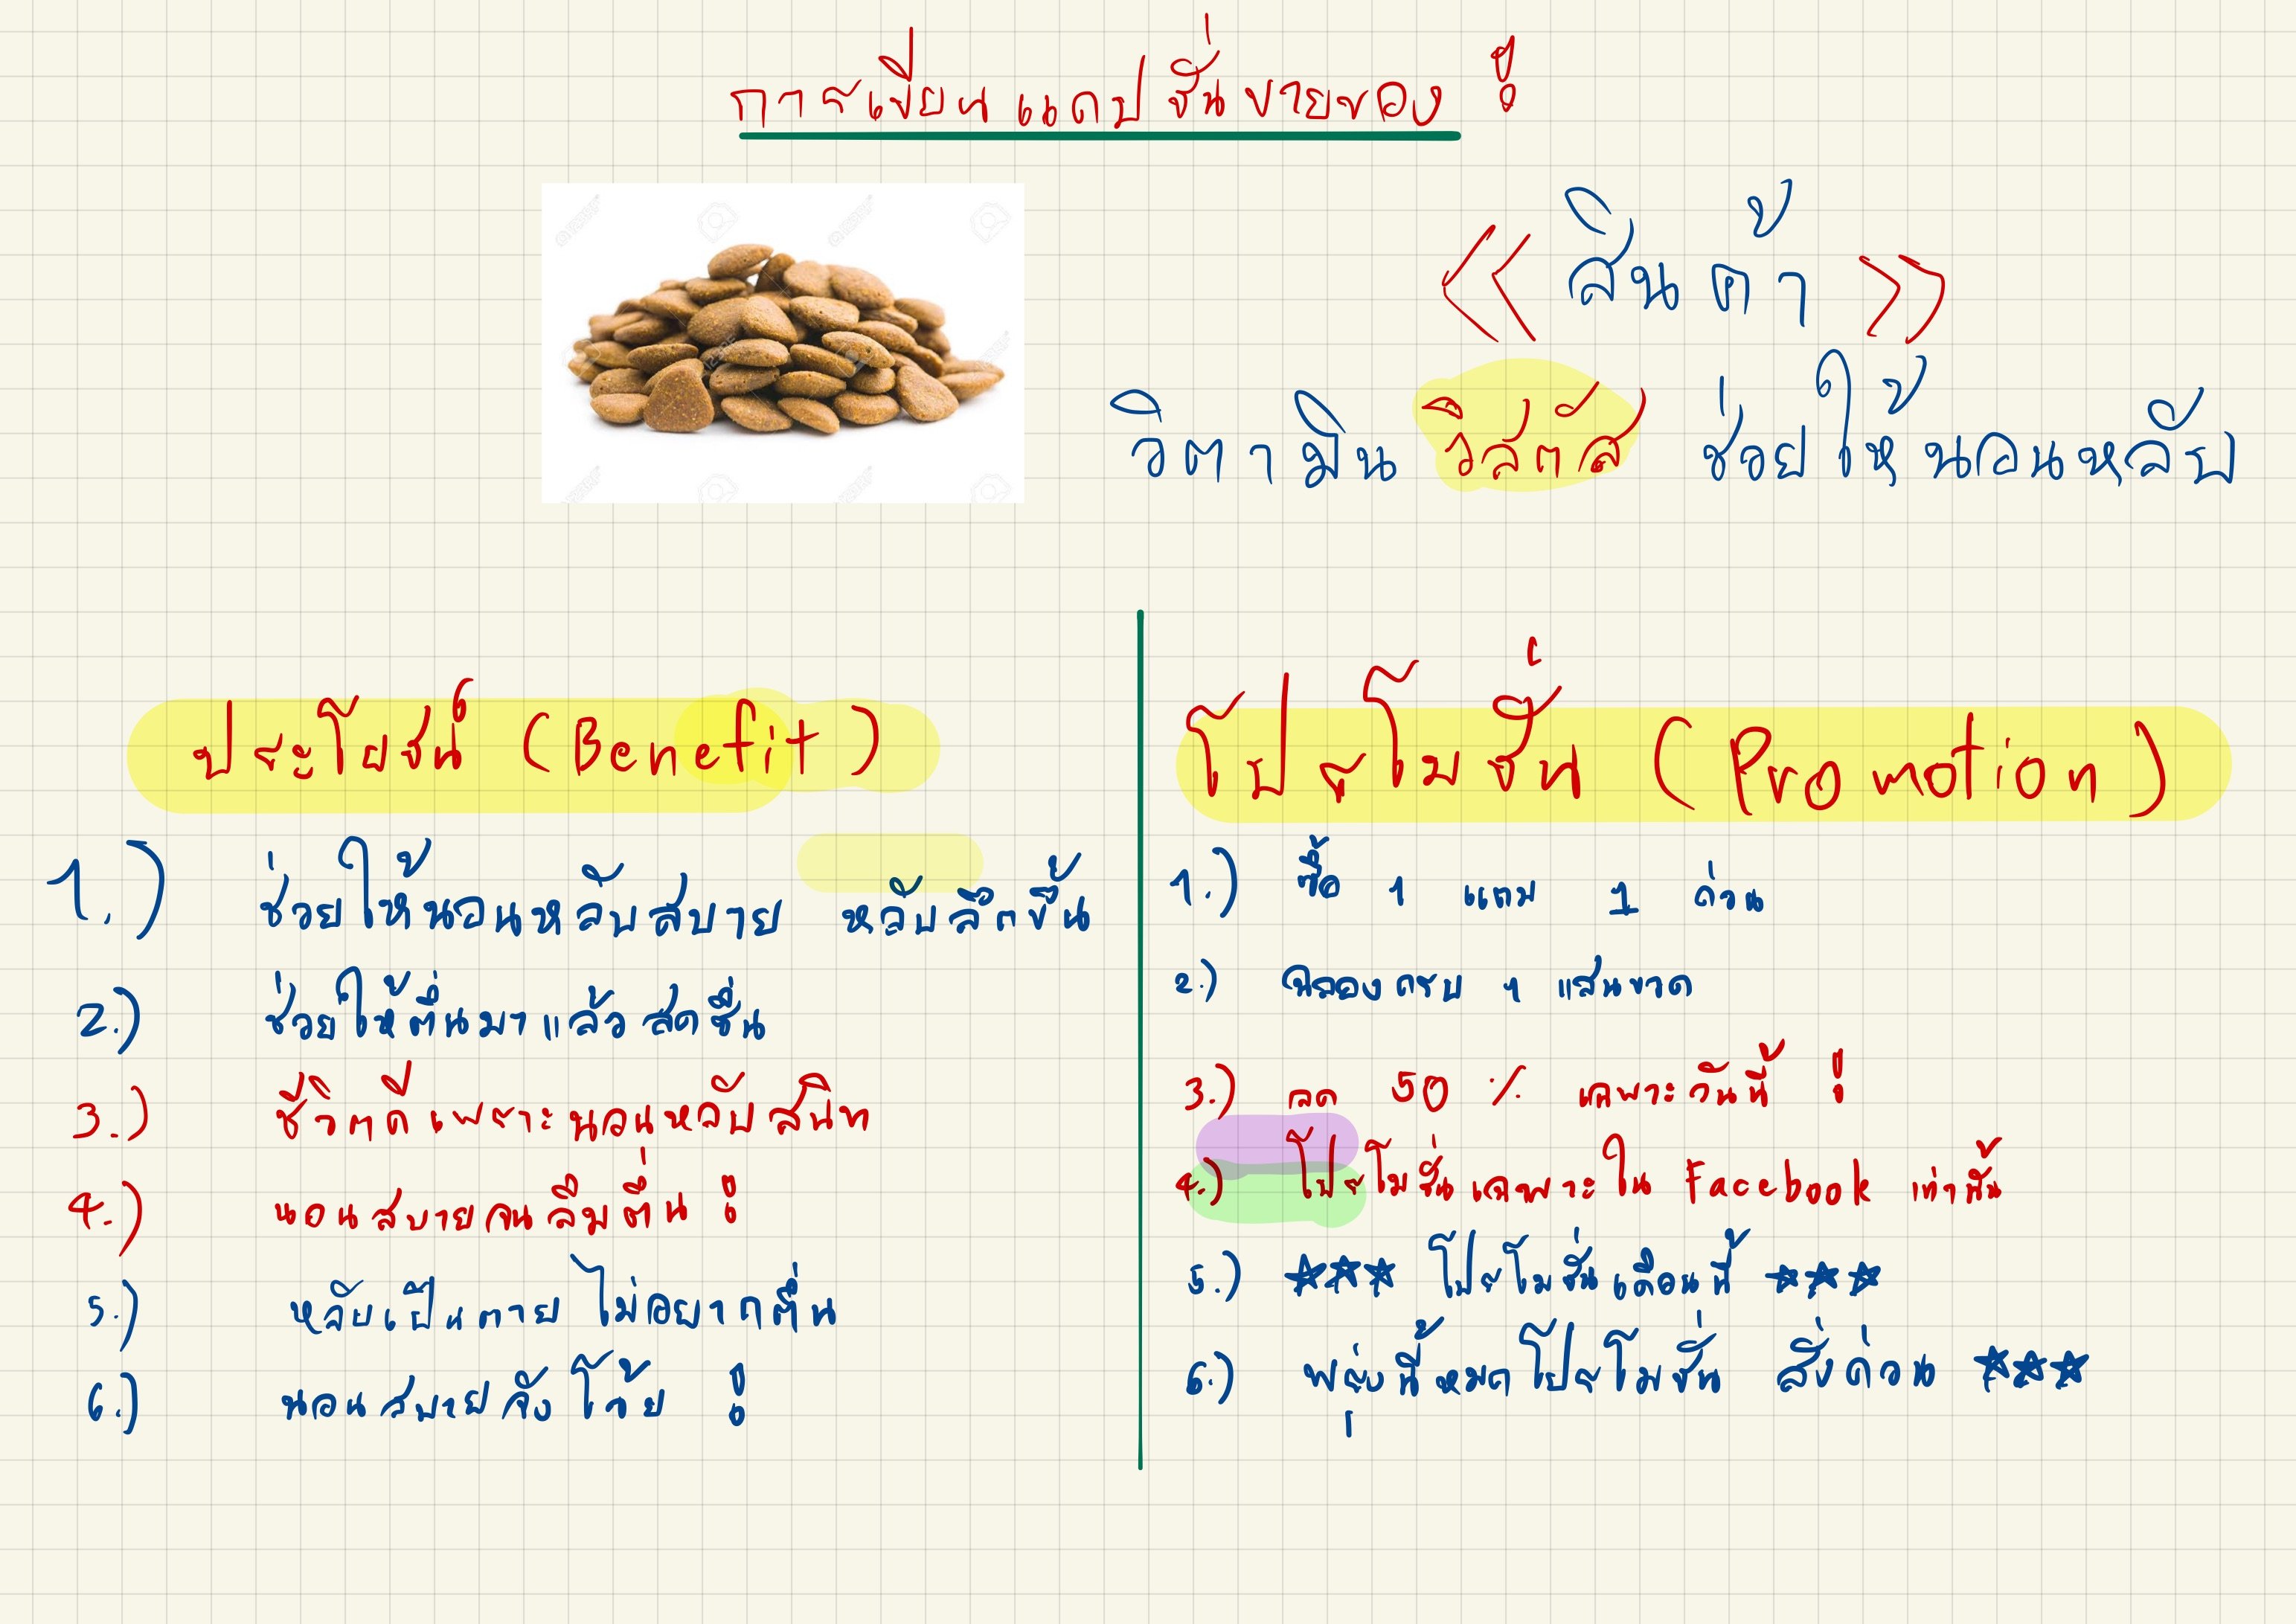 การเขียนแคปชั่นขายของ !
<< สินค้า >>
วิตามิน วิสตัส ช่วยให้นอนหลับ
ประโยชน์ (Benefit)
1.) ช่วยให้นอนหลับสบาย หลับลึกขึ้น
2.) ช่วยให้ตื่นมาแล้วสดชื่น
3.) ชีวิตดีเพราะนอนหลับสนิท
4.) นอนสบายจนลืมตื่น !
5.) หลับเป็นตาย ไม่อยากตื่น
6.) นอนสบายจังโว้ย !
โปรโมชั่น (Promotion)
1.) ซื้อ 1 แถม 1 ด่วน
2.) ฉลองครบ 1 แสนขวด
3.) ลด 50 % เฉพาะวันนี้ !
4.) โปรโมชั่นเฉพาะใน Facebook เท่านั้น
5.) ★★★ โปรโมชั่นเดือนนี้ ★★★
6.) พรุ่งนี้หมดโปรโมชั่น สั่งด่วน ★★★